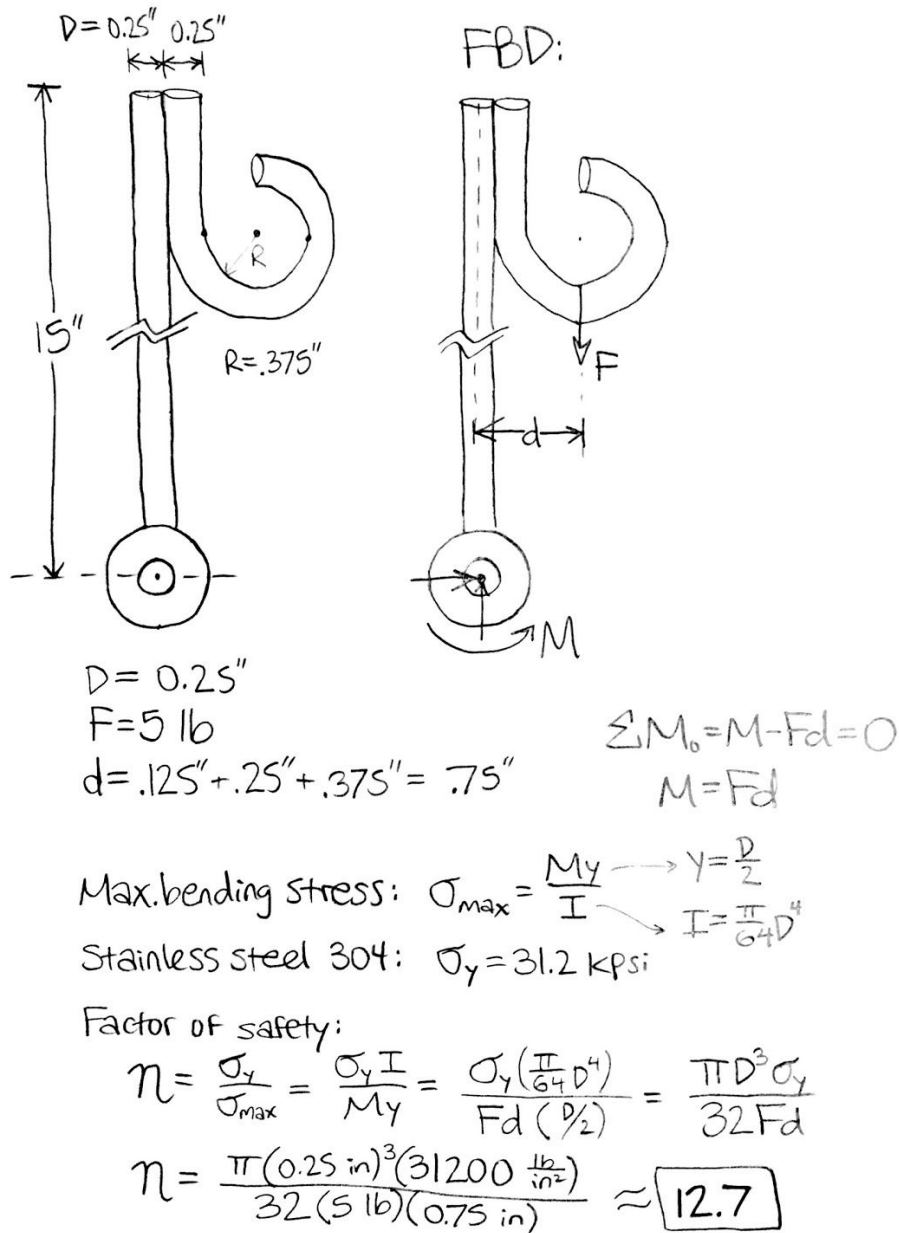 D=0.25" 0.25"
FBD:
15"
R
R=.375"
F
d
M
D= 0.25"
F=5 lb
d=.125"+.25"+.375"= .75"
ΣM₀=M-Fd=0
M=Fd
Max.bending stress: σmax = My/I
y=D/2
I=π/64 D⁴
Stainless steel 304: σy=31.2 kpsi
Factor of safety:
n= σy/σmax = σy I/My = σy(π/64 D⁴)/Fd(D/2) = πD³σy/32Fd
n= π(0.25 in)³(31200 lb/in²)/32(5 lb)(0.75 in) ≈ 12.7